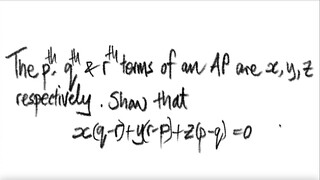 The pᵗʰ, qᵗʰ & rᵗʰ terms of an AP are x, y, z
respectively. Show that
x(q-r)+y(r-p)+z(p-q)=0